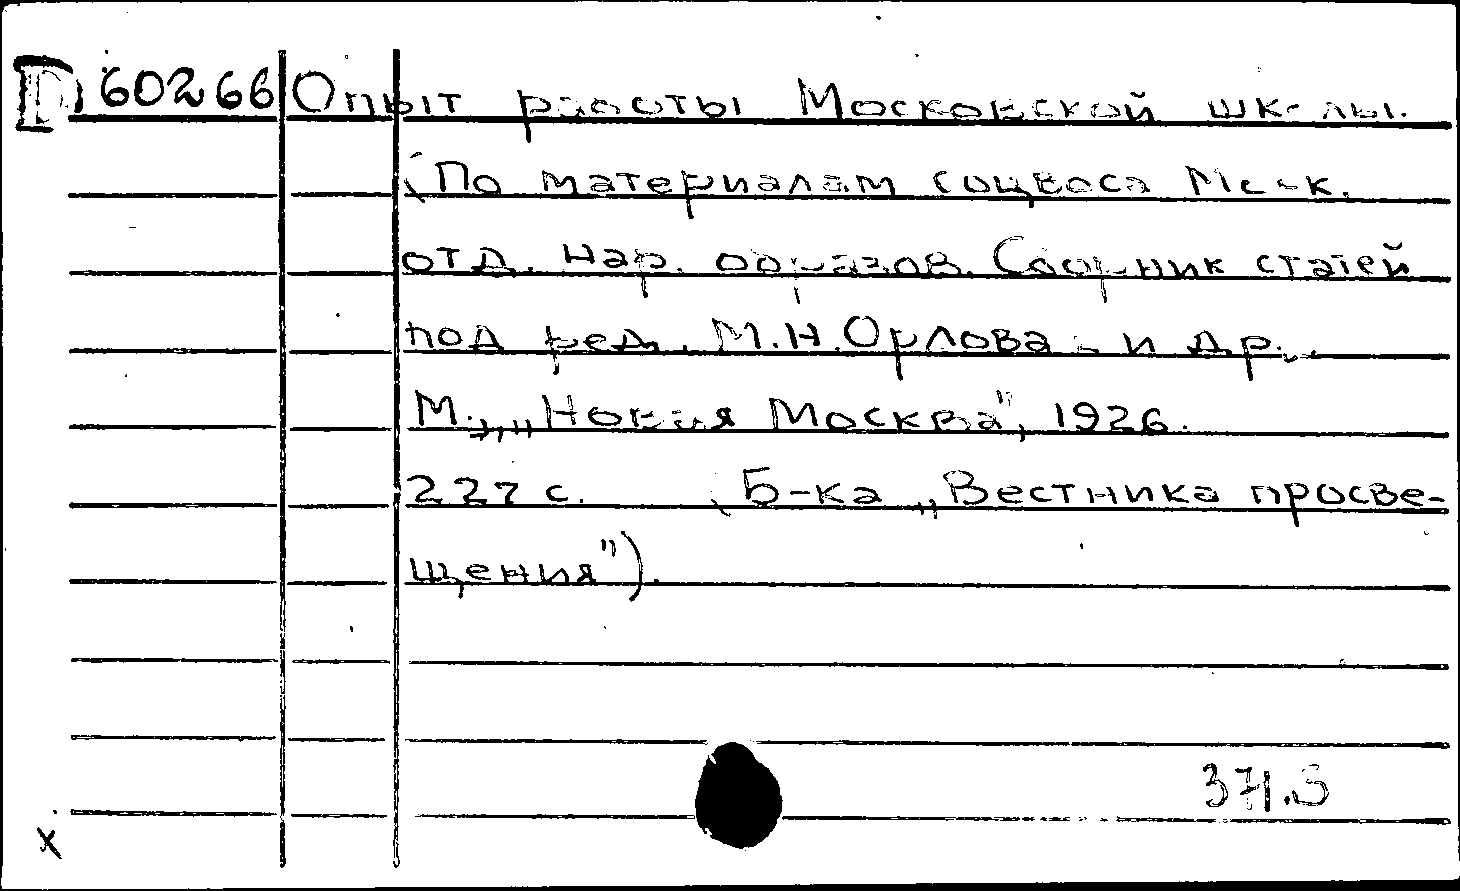 D 60266 Опыт работы Московской школы.
(По материалам соцвоса Моск.
отд. нар. образов. Сборник статей
под ред. М.Н.Орлова и др.
М., „Новая Москва", 1926.
227 с. (Б-ка „Вестника просве-
щения").
371.3
x